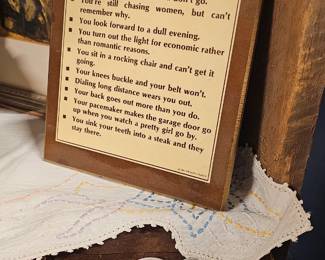 You're still chasing women, but can't
remember why.
You look forward to a dull evening.
You turn out the light for economic rather
than romantic reasons.
You sit in a rocking chair and can't get it
going.
Your knees buckle and your belt won't.
Dialing long distance wears you out.
Your back goes out more than you do.
Your pacemaker makes the garage door go
up when you watch a pretty girl go by.
You sink your teeth into a steak and they
stay there.